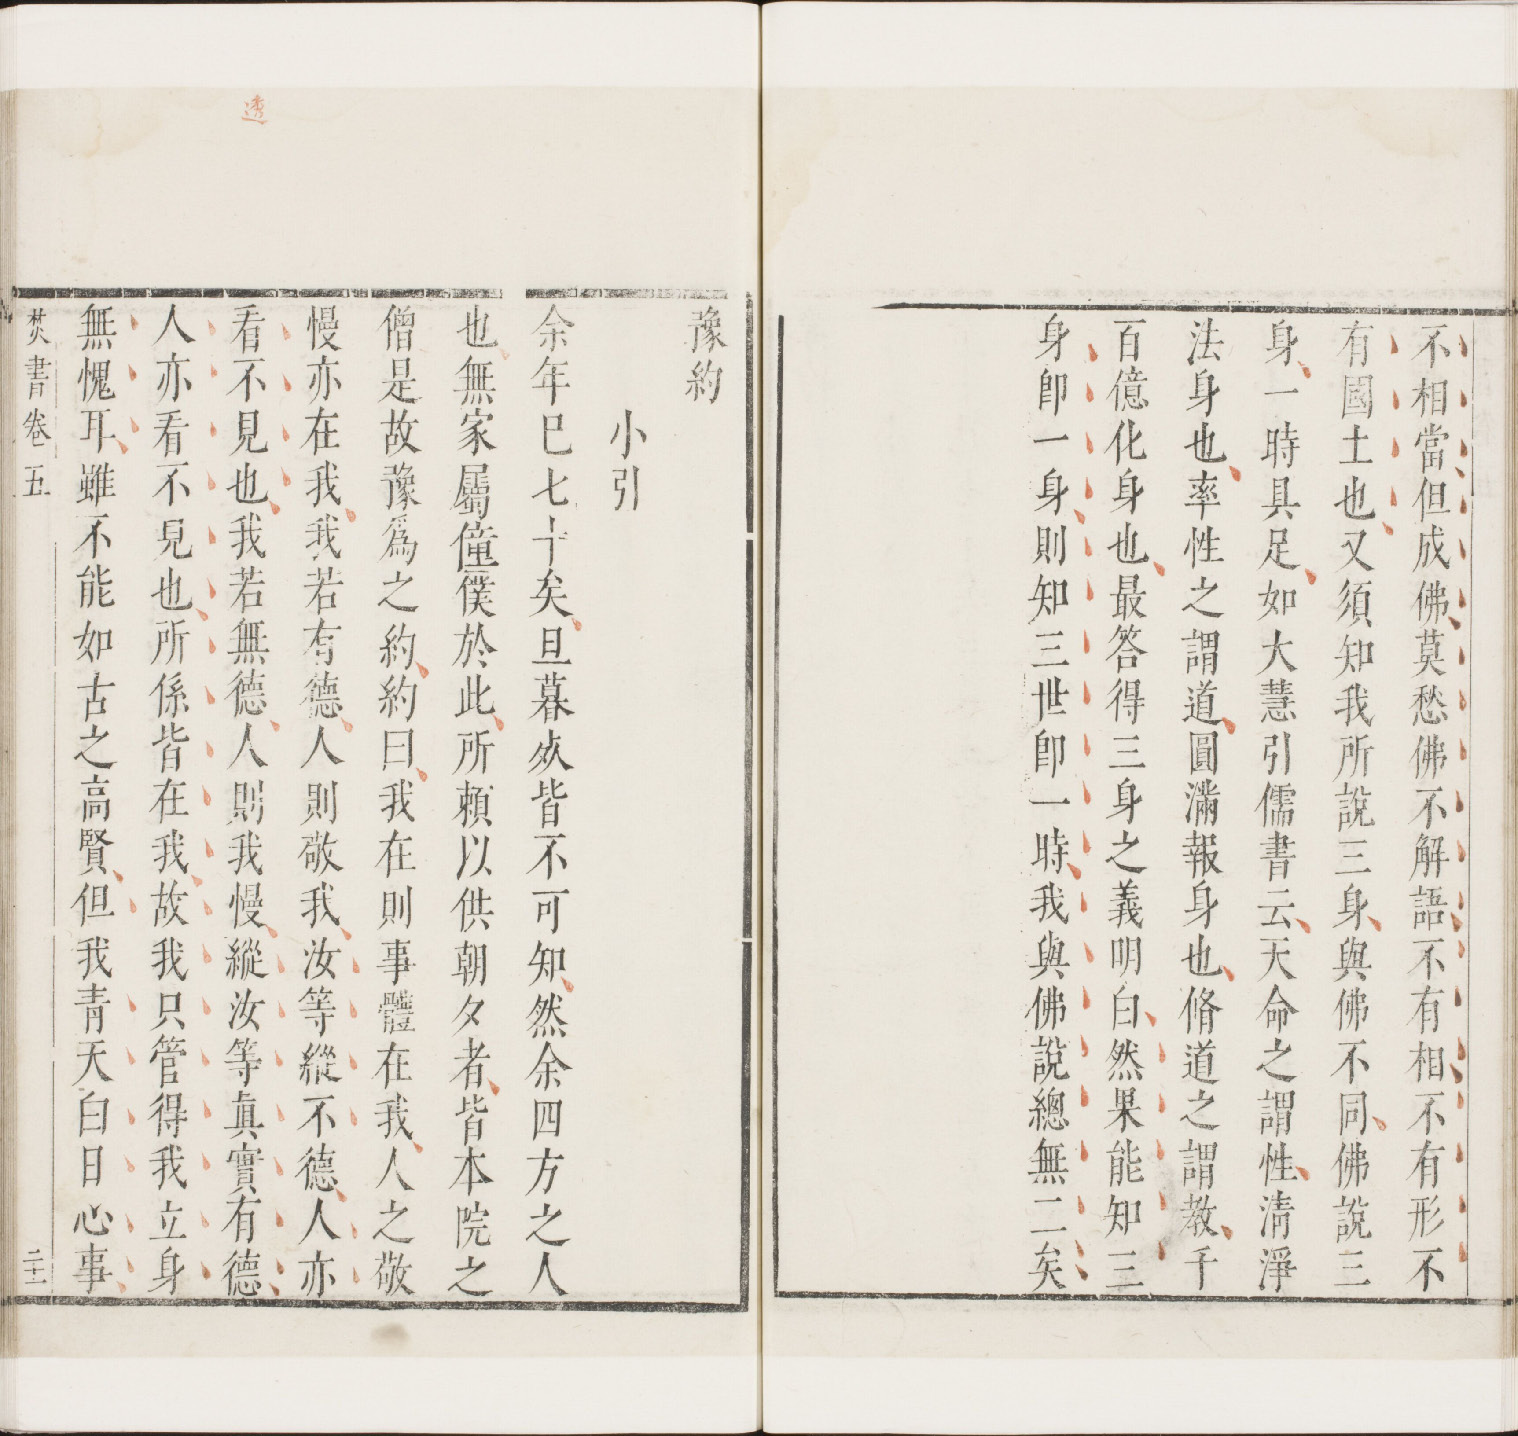 不相當但成佛莫愁佛不解語不有相不有形不
有國土也又須知我所說三身與佛不同佛說三
身一時具足如大慧引儒書云天命之謂性清淨
法身也率性之謂道圓滿報身也脩道之謂教千
百億化身也最答得三身之義明白然果能知三
身卽一身則知三世卽一時我與佛說總無二矣
豫約
小引
余年巳七十矣旦暮死皆不可知然余四方之人
也無家屬僮僕於此所賴以供朝夕者皆本院之
僧是故豫爲之約約曰我在則事體在我人之敬
慢亦在我我若有德人則敬我汝等縱不德人亦
看不見也我若無德人則我慢縱汝等眞實有德
人亦看不見也所係皆在我故我只管得我立身
無愧耳雖不能如古之高賢但我靑天白日心事
焚書卷五
二十一
透